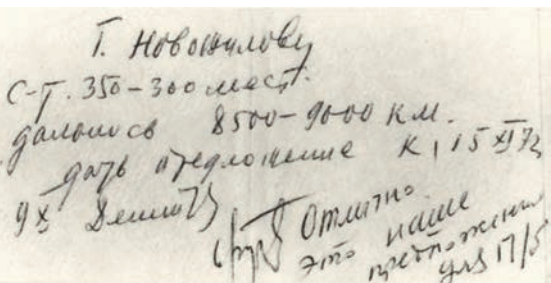 Т. Новожилову
С-Т. 350-300 мест.
дальность 8500-9000 км.
дать предложение к 15 XI 72
9 X
Отлично
это наше
предложение
для